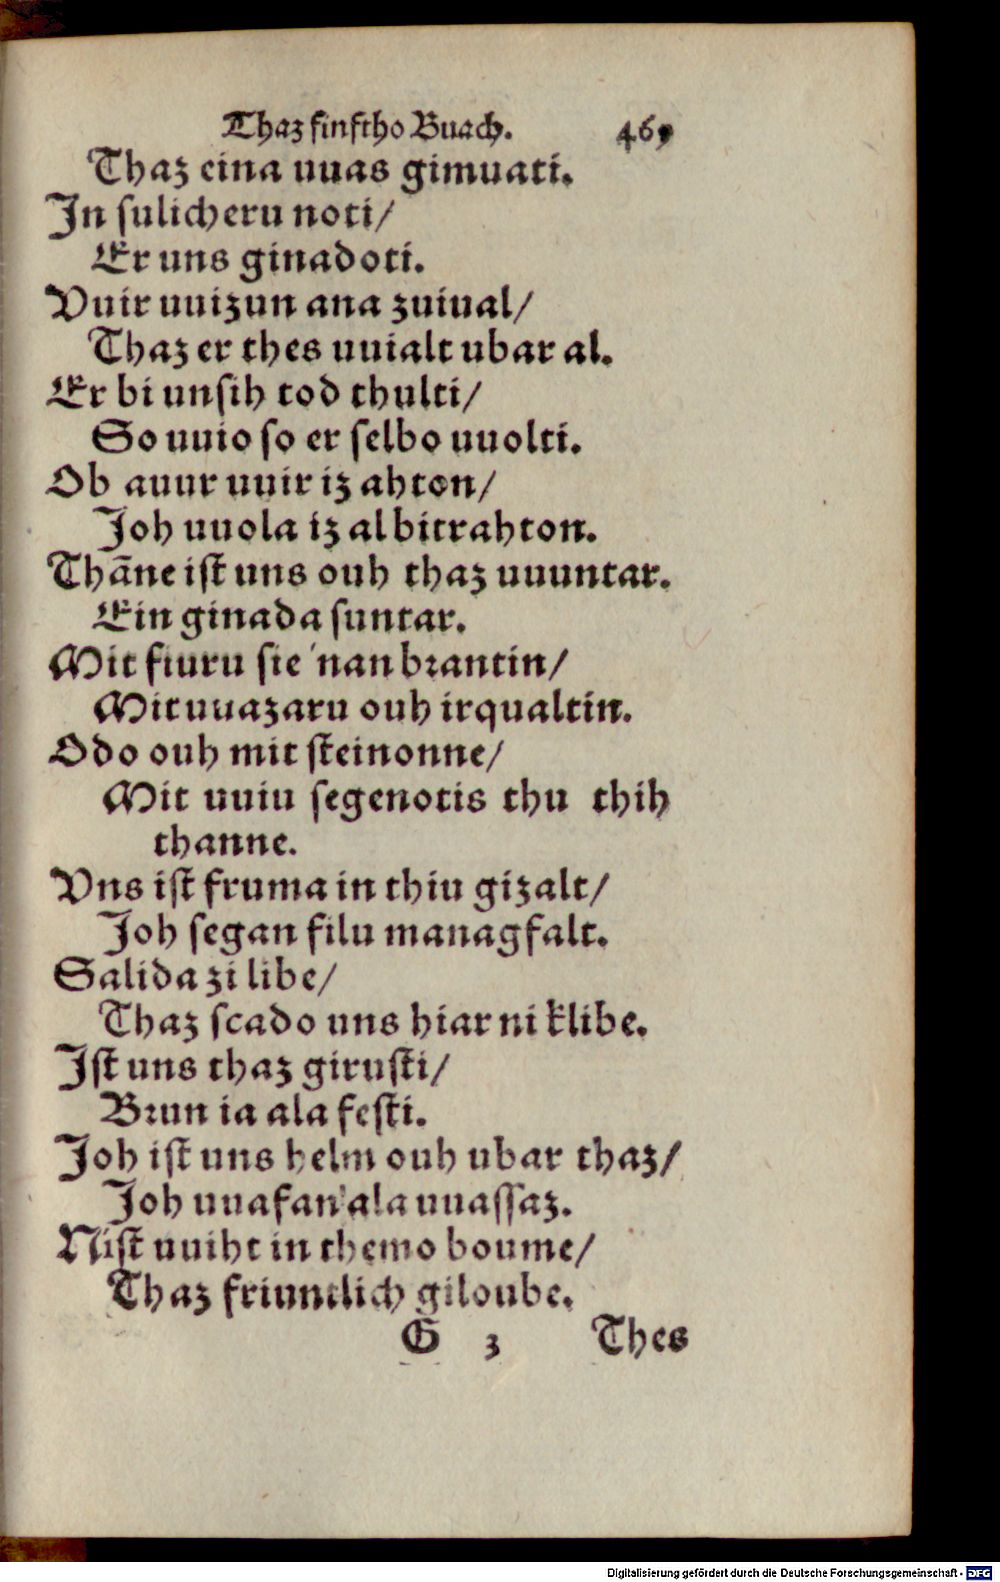 Thaz finftho Buach. 469
Thaz eina uuas gimuati.
In sulicheru noti/
Er uns ginadoti.
Vuir uuizun ana zuiual/
Thaz er thes uuialt ubar al.
Er bi unsih tod thulti/
So uuio so er selbo uuolti.
Ob auur uuir iz ahton/
Joh uuola iz al bitrahton.
Thāne ist uns ouh thaz uuuntar.
Ein ginada suntar.
Mit fiuru sie 'nan brantin/
Mit uuazaru ouh irqualtin.
Odo ouh mit steinonne/
Mit uuiu segenotis thu thih
thanne.
Vns ist fruma in thiu gizalt/
Joh segan filu managfalt.
Salida zi libe/
Thaz scado uns hiar ni klibe.
Ist uns thaz girusti/
Brun ia ala festi.
Joh ist uns helm ouh ubar thaz/
Joh uuafan' ala uuassaz.
Nist uuiht in themo boume/
Thaz friuntlich giloube.
G 3 Thes
Digitalisierung gefördert durch die Deutsche Forschungsgemeinschaft - DFG